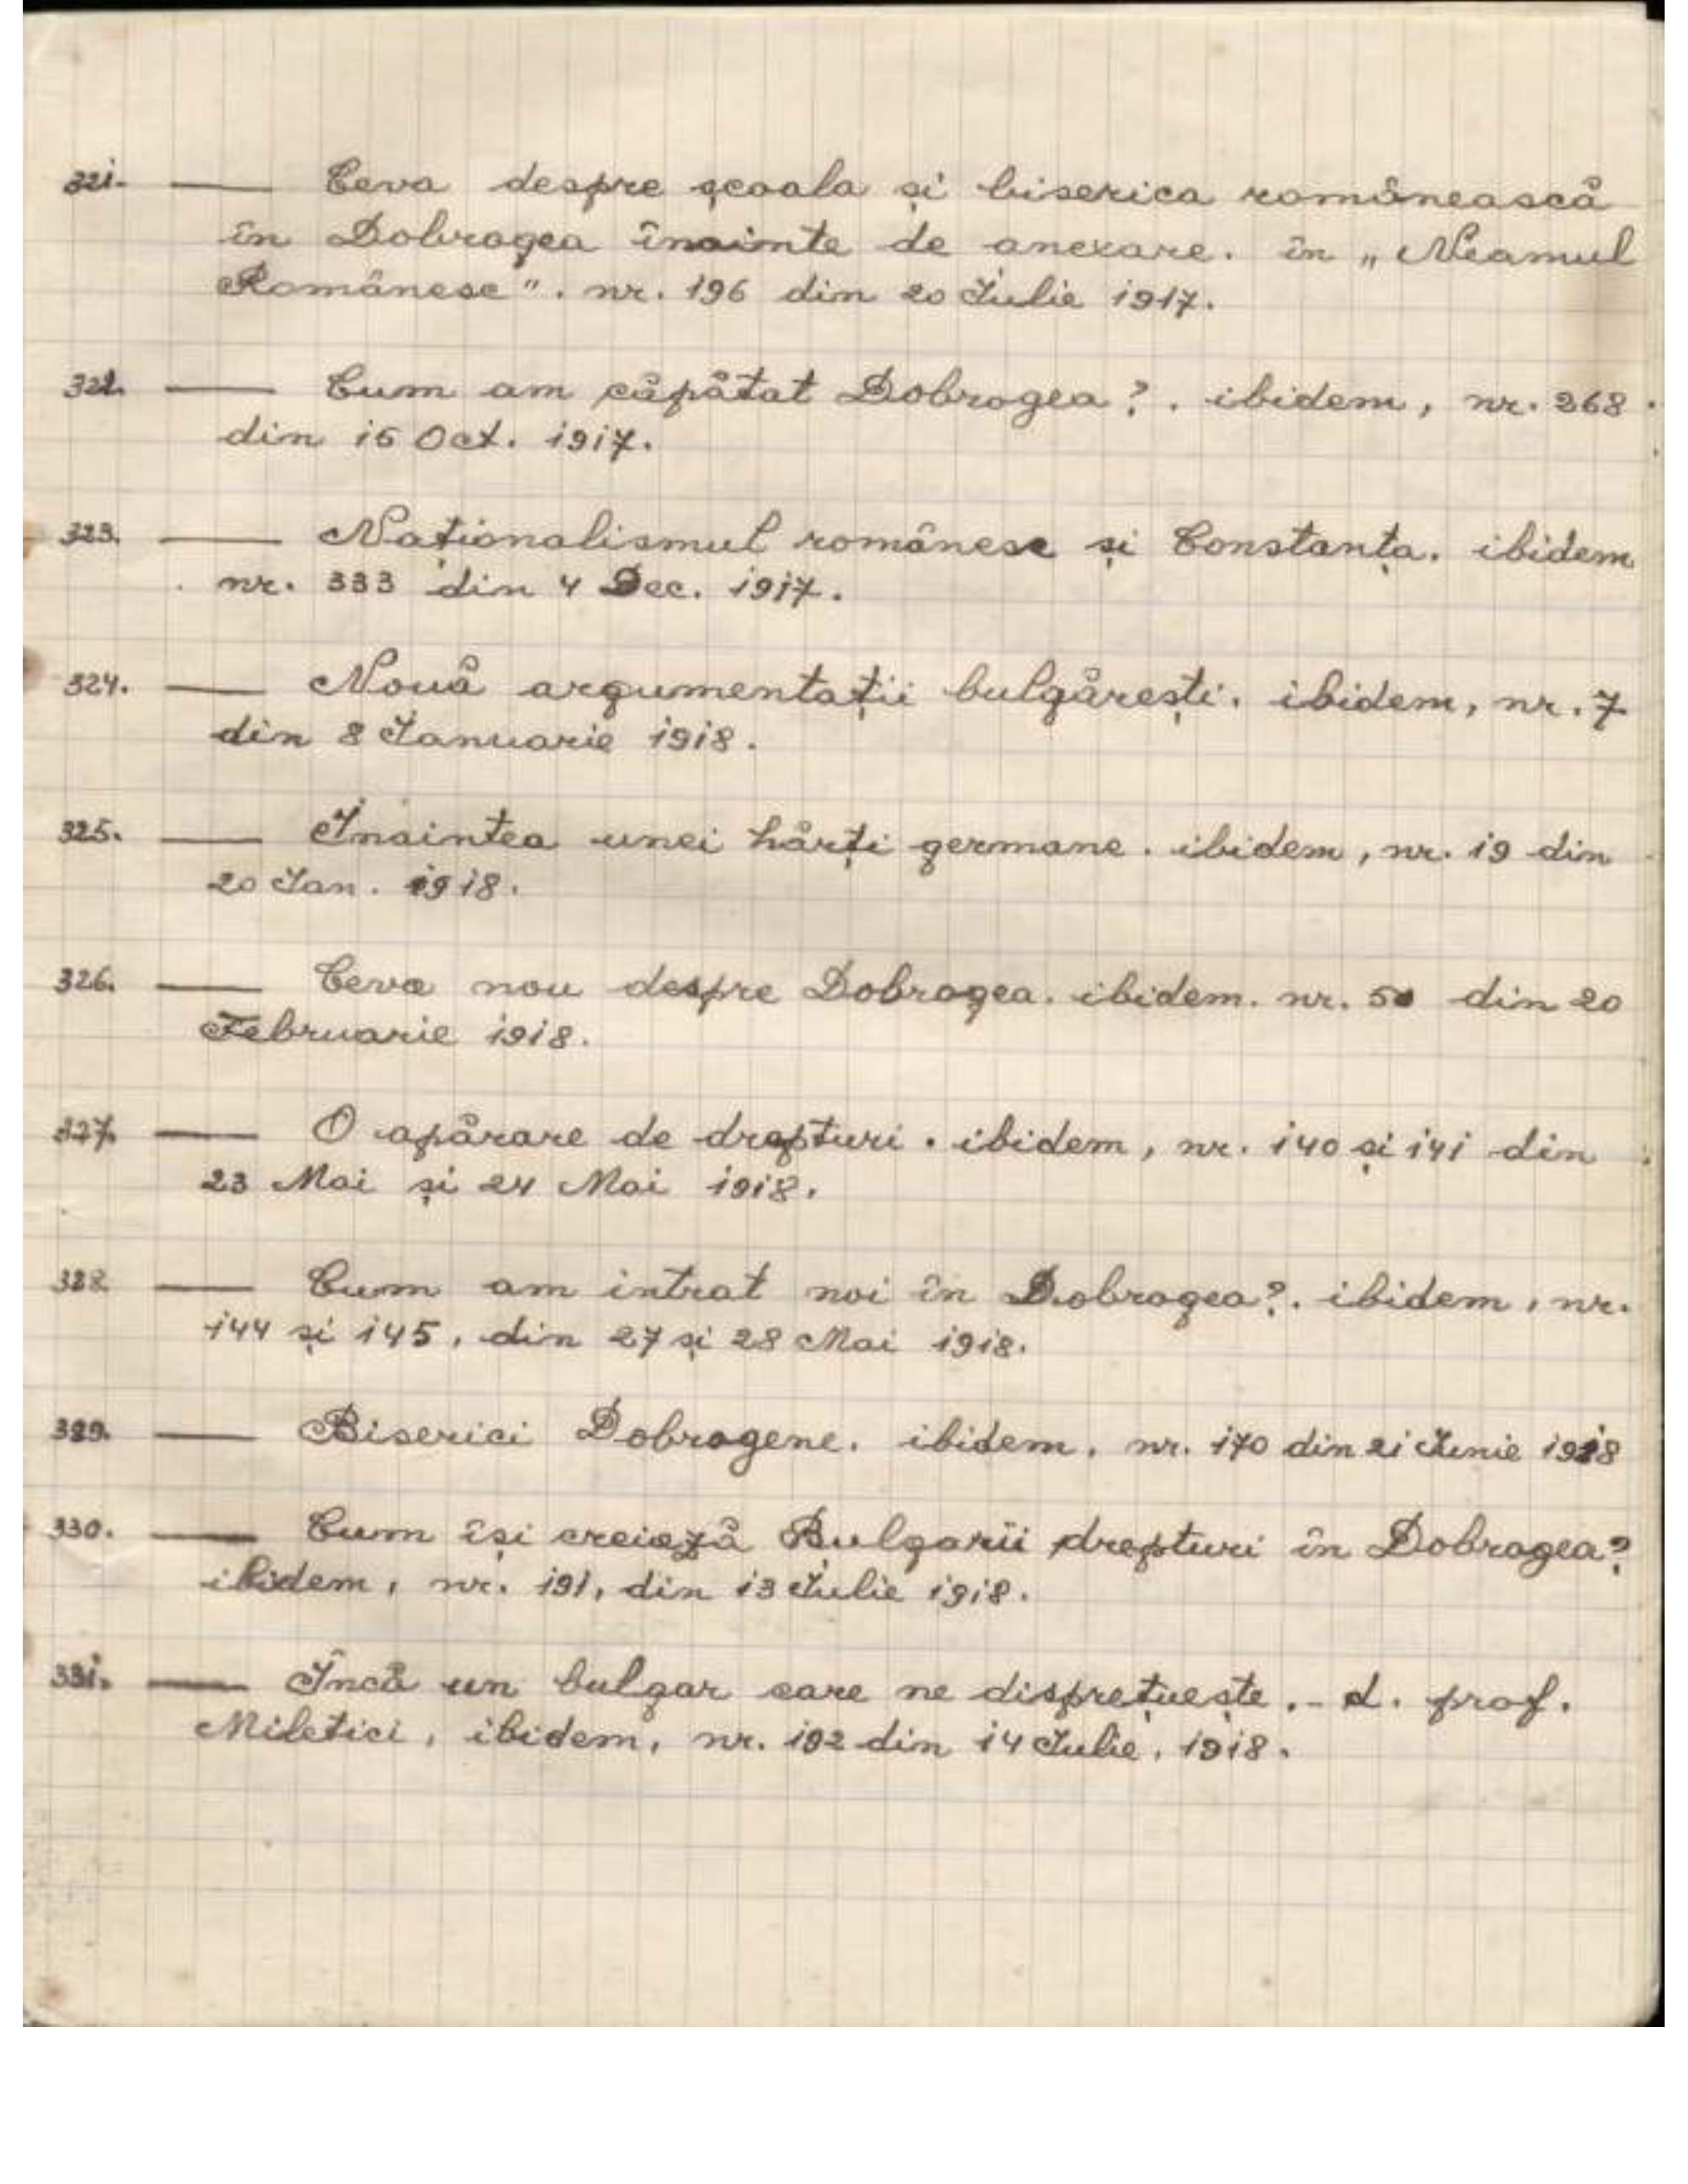 321. — Ceva despre școala și biserica românească
în Dobrogea înainte de anexare. în „Neamul
Românesc". nr. 196 din 20 Iulie 1917.
322. — Cum am căpătat Dobrogea?. ibidem, nr. 268
din 15 Oct. 1917.
323. — Naționalismul românesc și Constanța. ibidem
nr. 333 din 4 Dec. 1917.
324. — Nouă argumentații bulgărești. ibidem, nr. 7
din 8 Ianuarie 1918.
325. — Inaintea unei hărți germane. ibidem, nr. 19 din
20 Ian. 1918.
326. — Ceva nou despre Dobrogea. ibidem. nr. 50 din 20
Februarie 1918.
327. — O apărare de drepturi. ibidem, nr. 140 și 141 din
23 Mai și 24 Mai 1918.
328. — Cum am intrat noi în Dobrogea?. ibidem, nr.
144 și 145, din 27 și 28 Mai 1918.
329. — Biserici Dobrogene. ibidem, nr. 170 din 21 Iunie 1918
330. — Cum își creiază Bulgarii drepturi în Dobrogea?
ibidem, nr. 191, din 13 Iulie 1918.
331. — Încă un bulgar care ne disprețuește.- d. prof.
Miletici, ibidem, nr. 192 din 14 Iulie, 1918.